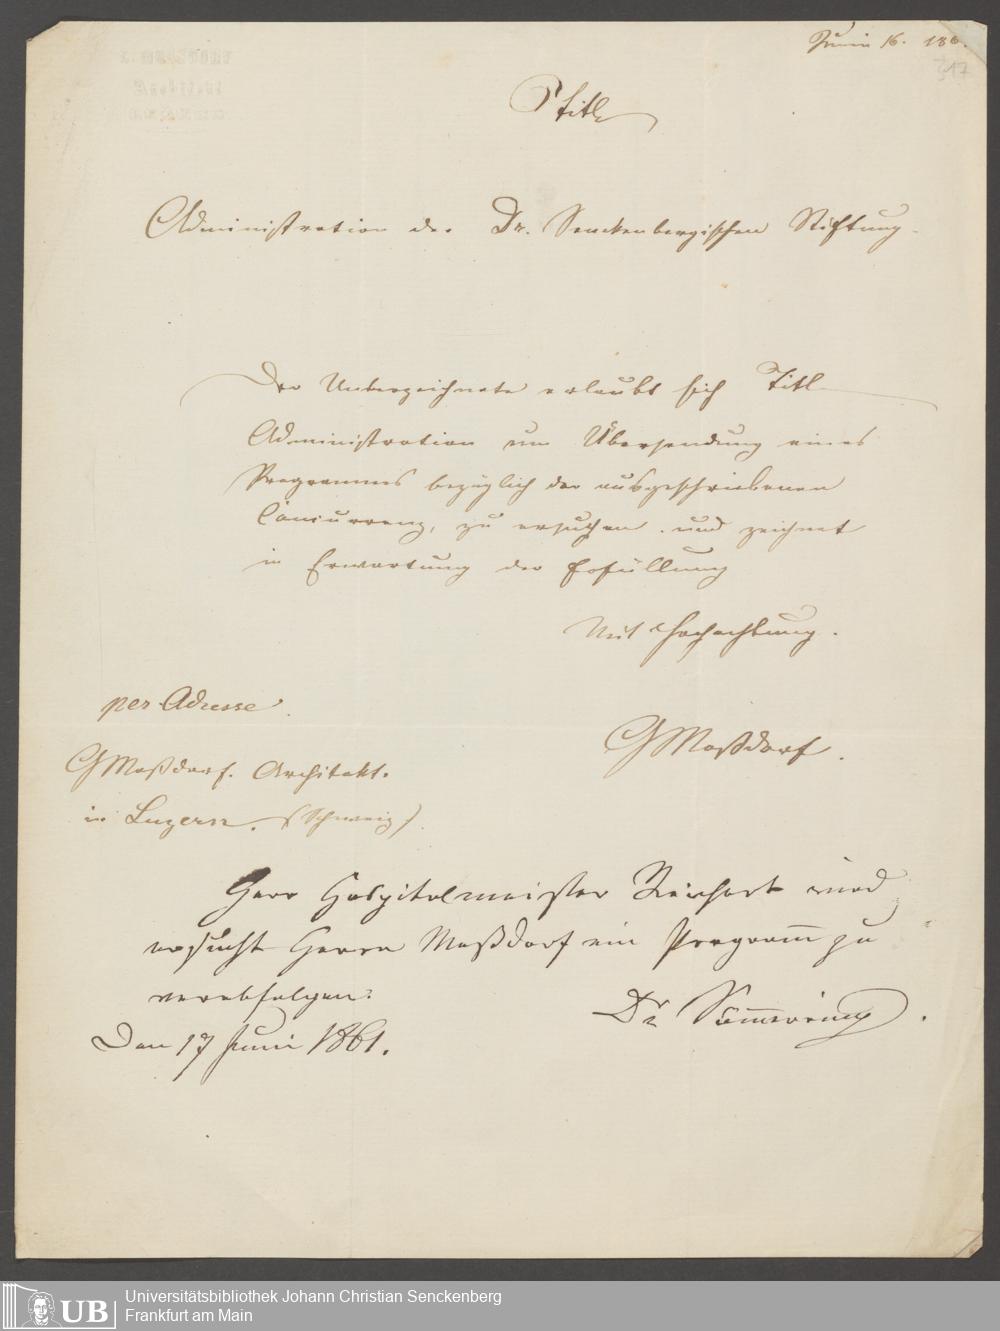 Juni 16. 186
317
Titl
Administration der Dr. Senckenbergischen Stiftung.
Der Unterzeichnete erlaubt sich Titl
Administration um Übersendung eines
Programmes bezüglich der ausgeschriebenen
Concurrenz, zu ersuchen und zeichnet
in Erwartung der Erfüllung
Mit Hochachtung.
per Adresse
GMoßdorf.
GMoßdorf. Architekt.
in Luzern. (Schweiz)
Herr Hospitalmeister Reichart wird
ersucht Herrn Moßdorf ein Programm zu
verabfolgen.
Dr Sömmering.
Den 17 Juni 1861.
UB
Universitätsbibliothek Johann Christian Senckenberg
Frankfurt am Main